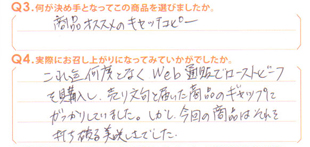 Q3.何が決め手となってこの商品を選びましたか。
商品オススメのキャッチコピー
Q4.実際にお召し上がりになってみていかがでしたか。
これ迄何度となくWeb通販でローストビーフ
を購入し、売り文句と届いた商品のギャップに
ガッカリしていました。しかし、今回の商品はそれを
打ち破る美味しさでした。